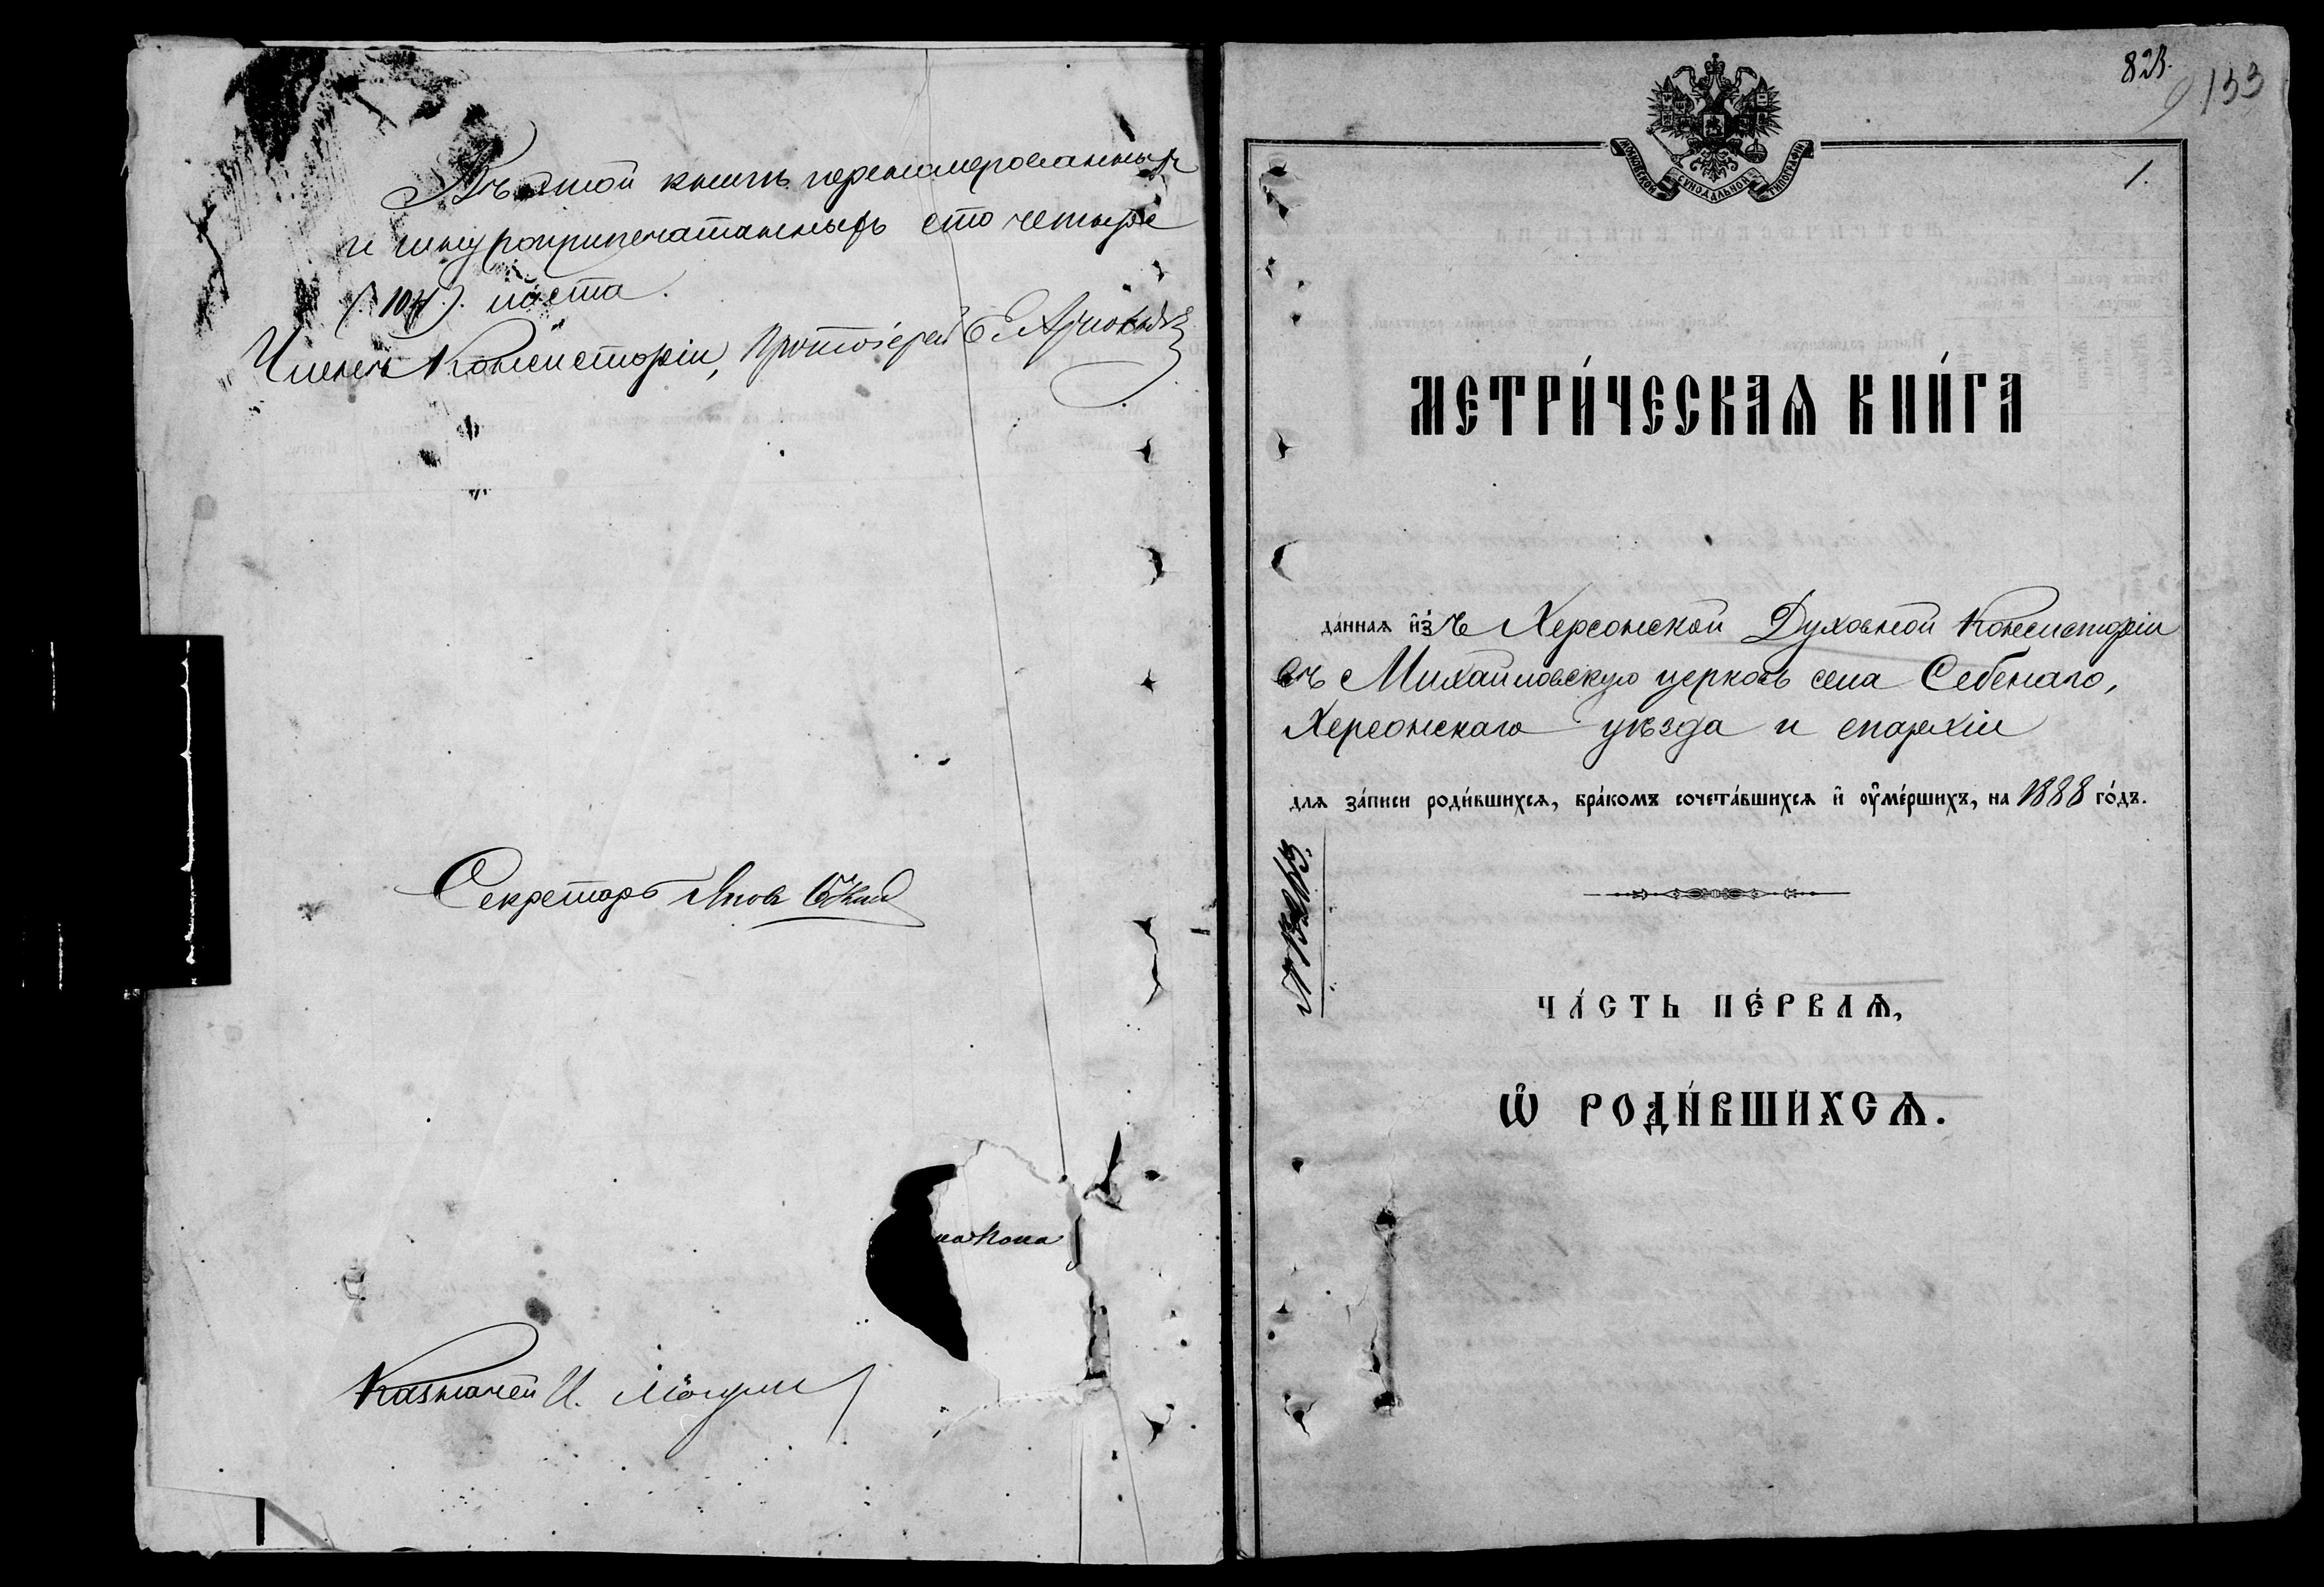 Въ этой книгѣ перенумерованныхъ
и шнуроприпечатанныхъ сто четыре
(104). листа.
Членъ Консисторіи, Протоіерей
Секретарь
на Кона
Казначей И.
823.
133
1.
МОСКОВСКОЙ СѴНОДАЛЬНОЙ ТИПОГРАФІИ
МЕТРИ́ЧЕСКАѦ КНИ́ГА
да́ннаѧ и҆з ъ Херсонской Духовной Консисторіи
въ Михайловскую церковь села Себенаго,
Херсонскаго уѣзда и епархіи
длѧ за́писи роди́вшихсѧ, бра́комъ сочета́вшихсѧ и҆ оу҆ме́ршихъ, на 1888 го́дъ.
ЧА́СТЬ ПЕ́РВАѦ,
Ѡ҆ РОДИ́ВШИХСѦ.